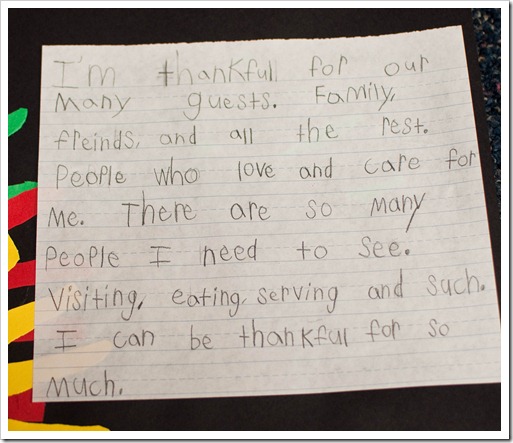 I'm thankfull for our
Many guests. Family,
freinds, and all the rest.
People who love and care for
Me. There are so many
People I need to see.
Visiting, eating, serving and such.
I can be thankful for so
Much.